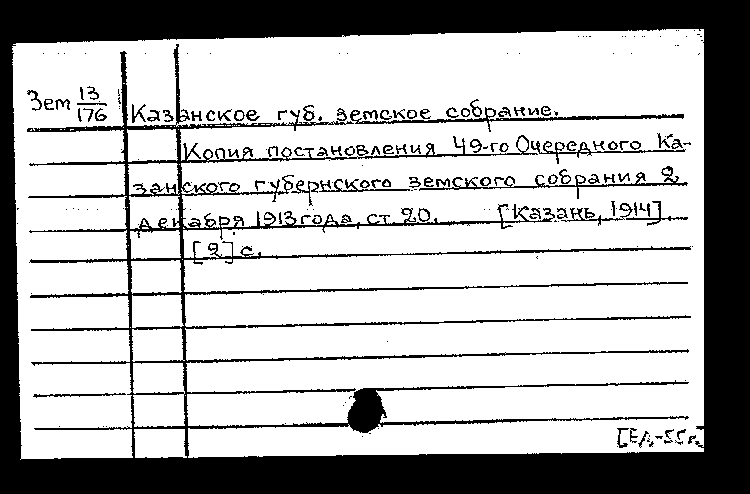 Зем 13/176
Казанское губ. земское собрание.
Копия постановления 49-го Очередного Ка-
занского губернского земского собрания 2
декабря 1913 года, ст. 20. [Казань, 1914].
[2] с.